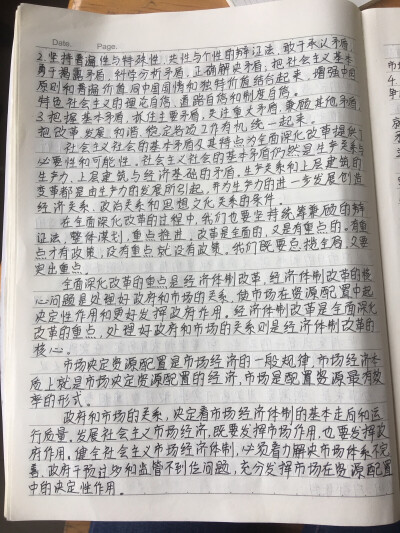 Date.    Page.
2.坚持普遍性与特殊性,共性与个性的辩证法,敢于承认矛盾,
勇于揭露矛盾,科学分析矛盾,正确解决矛盾,把社会主义基本
原则和普遍价值同中国国情和独特价值结合起来,增强中国
特色社会主义的理论自信,道路自信和制度自信。
3.把握基本矛盾,抓住主要矛盾,关注重大矛盾,兼顾其他矛盾,
把改革发展,和谐,稳定各项工作有机统一起来。
社会主义社会的基本矛盾及其特点为全面深化改革提供了
必要性和可能性。社会主义社会的基本矛盾仍然是生产关系与
生产力,上层建筑与经济基础的矛盾,生产关系和上层建筑的
变革都是由生产力的发展所引起,并为生产力的进一步发展创造
经济关系,政治关系和思想文化关系的条件。
在全面深化改革的过程中,我们也要坚持统筹兼顾的辩
证法,整体谋划,重点推进,改革是全面的,又是有重点的。有重
点才有政策,没有重点就没有政策。我们既要总揽全局,又要
突出重点。
全面深化改革的重点是经济体制改革,经济体制改革的核
心问题是处理好政府和市场的关系,使市场在资源配置中起
决定性作用和更好发挥政府作用。经济体制改革是全面深化
改革的重点,处理好政府和市场的关系则是经济体制改革的
核心。
市场决定资源配置是市场经济的一般规律,市场经济本
质上就是市场决定资源配置的经济,市场是配置资源最有效
率的形式。
政府和市场的关系,决定着市场经济体制的基本走向和运
行质量。发展社会主义市场经济,既要发挥市场作用,也要发挥政
府作用,健全社会主义市场经济体制,必须着力解决市场体系不完
善,政府干预过多和监管不到位问题,充分发挥市场在资源配置
中的决定性作用。